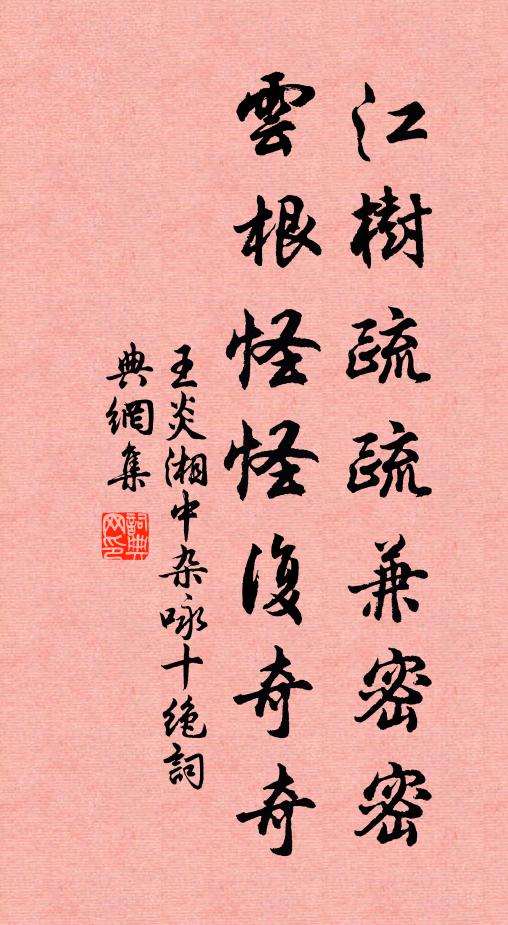 江樹疏疏兼密密
雲根怪怪復奇奇
王炎湘中杂咏十绝詞
典網集
詞典網印